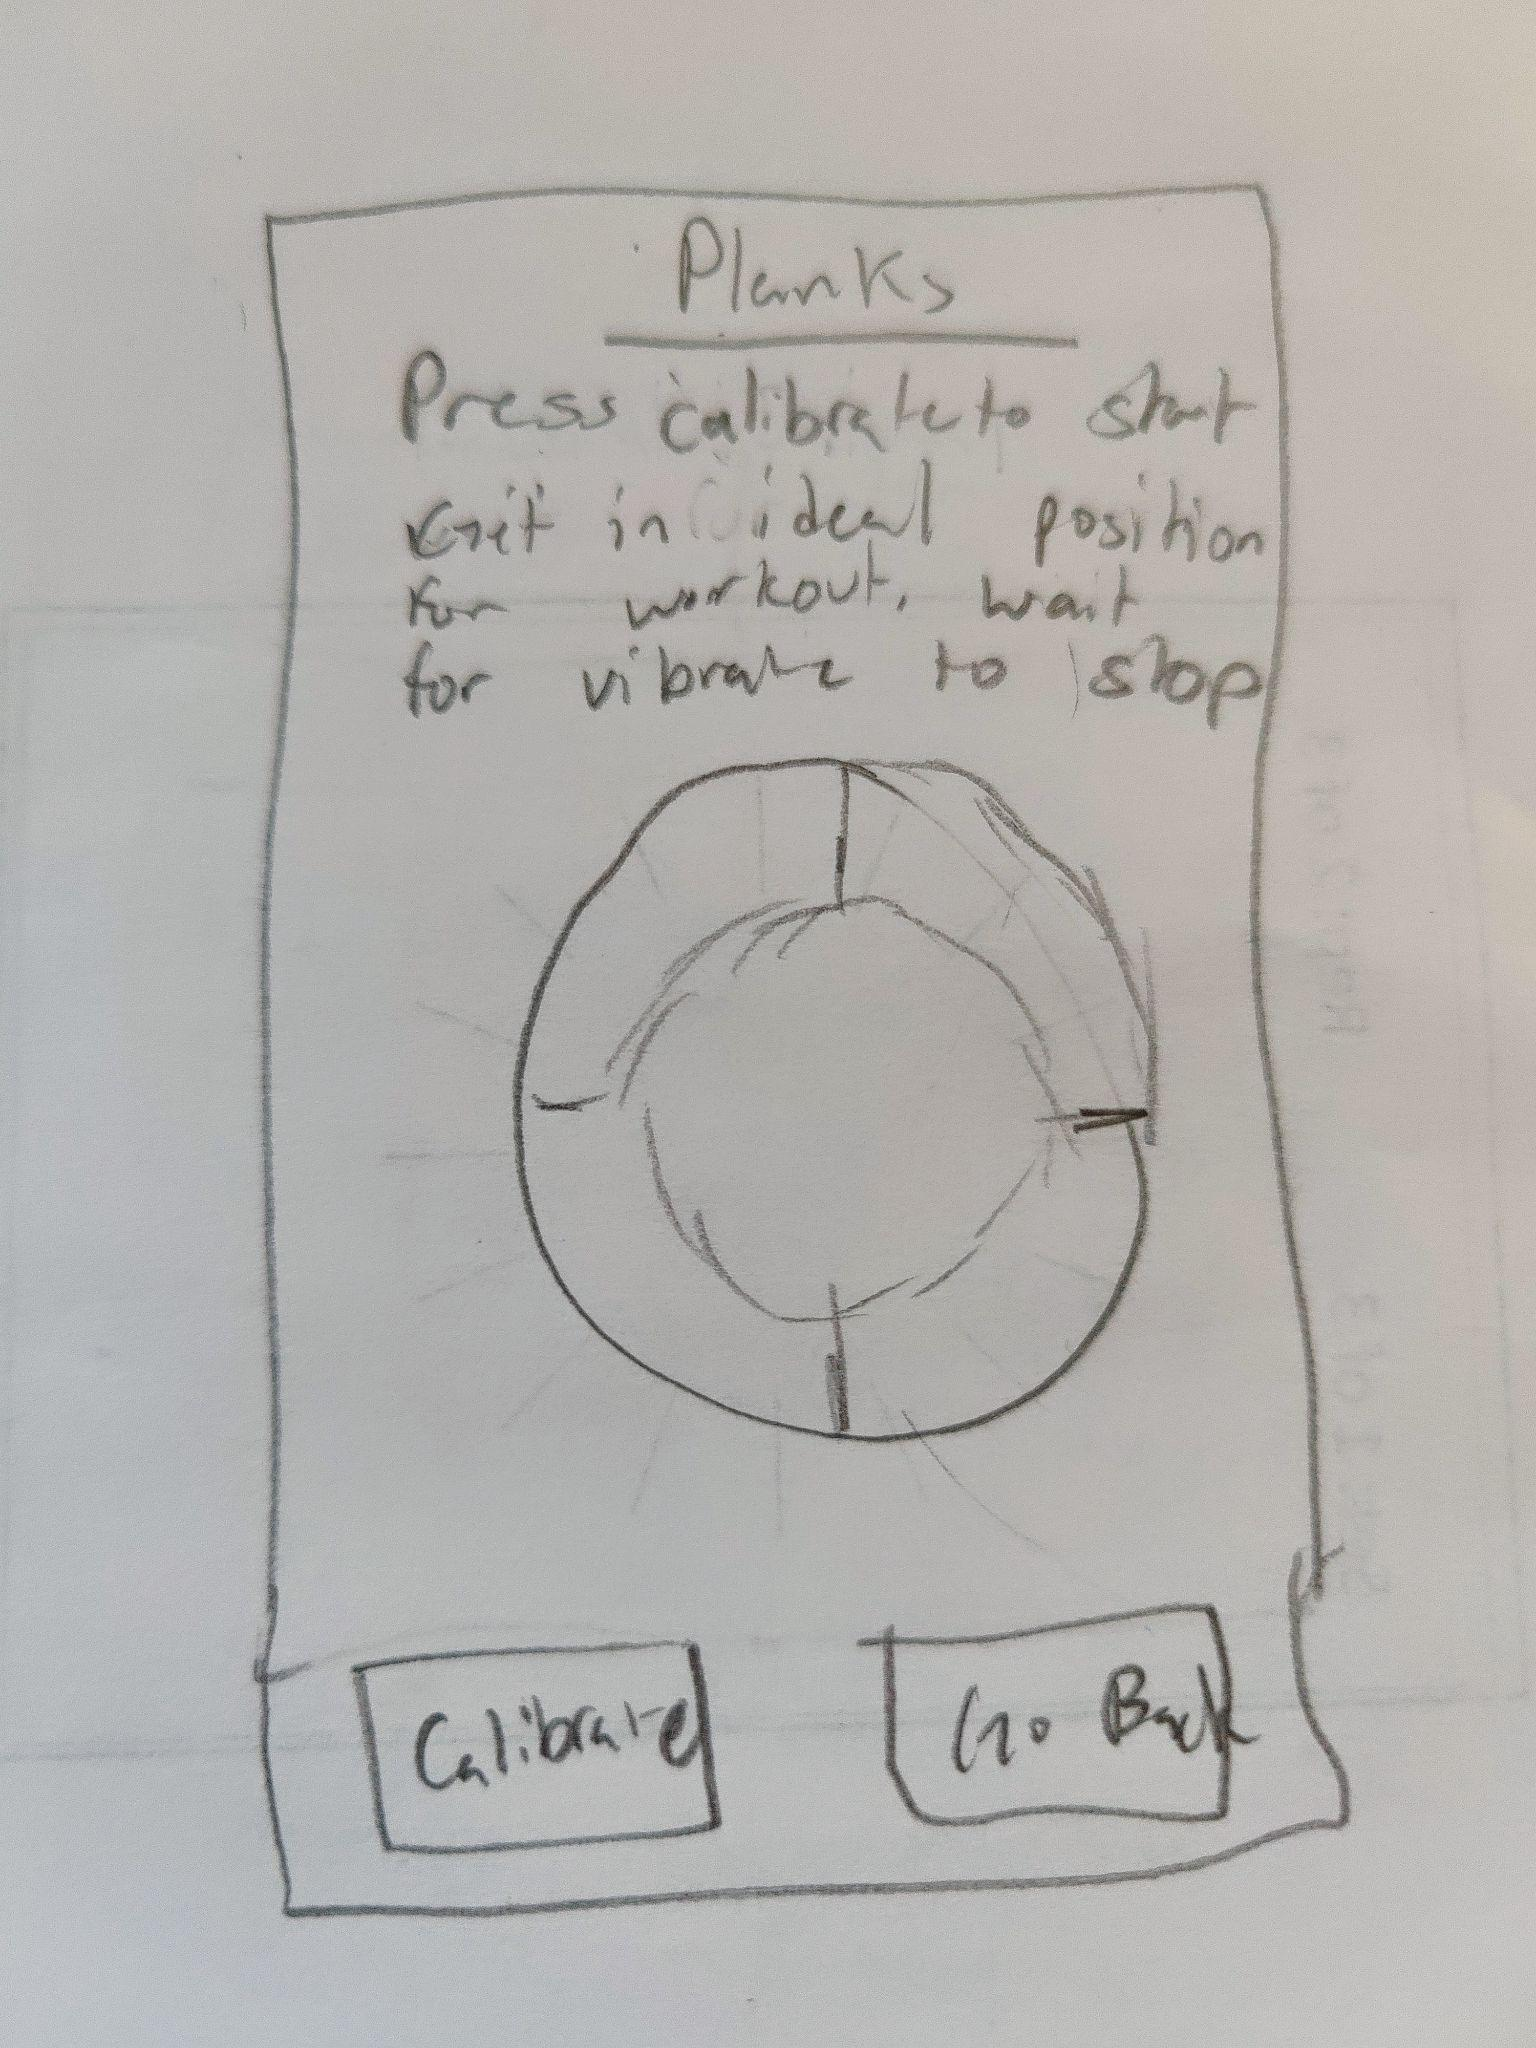 Planks
Press calibrate to start
in ideal position
for workout. wait
for vibrate to stop
Calibrate
Go Back